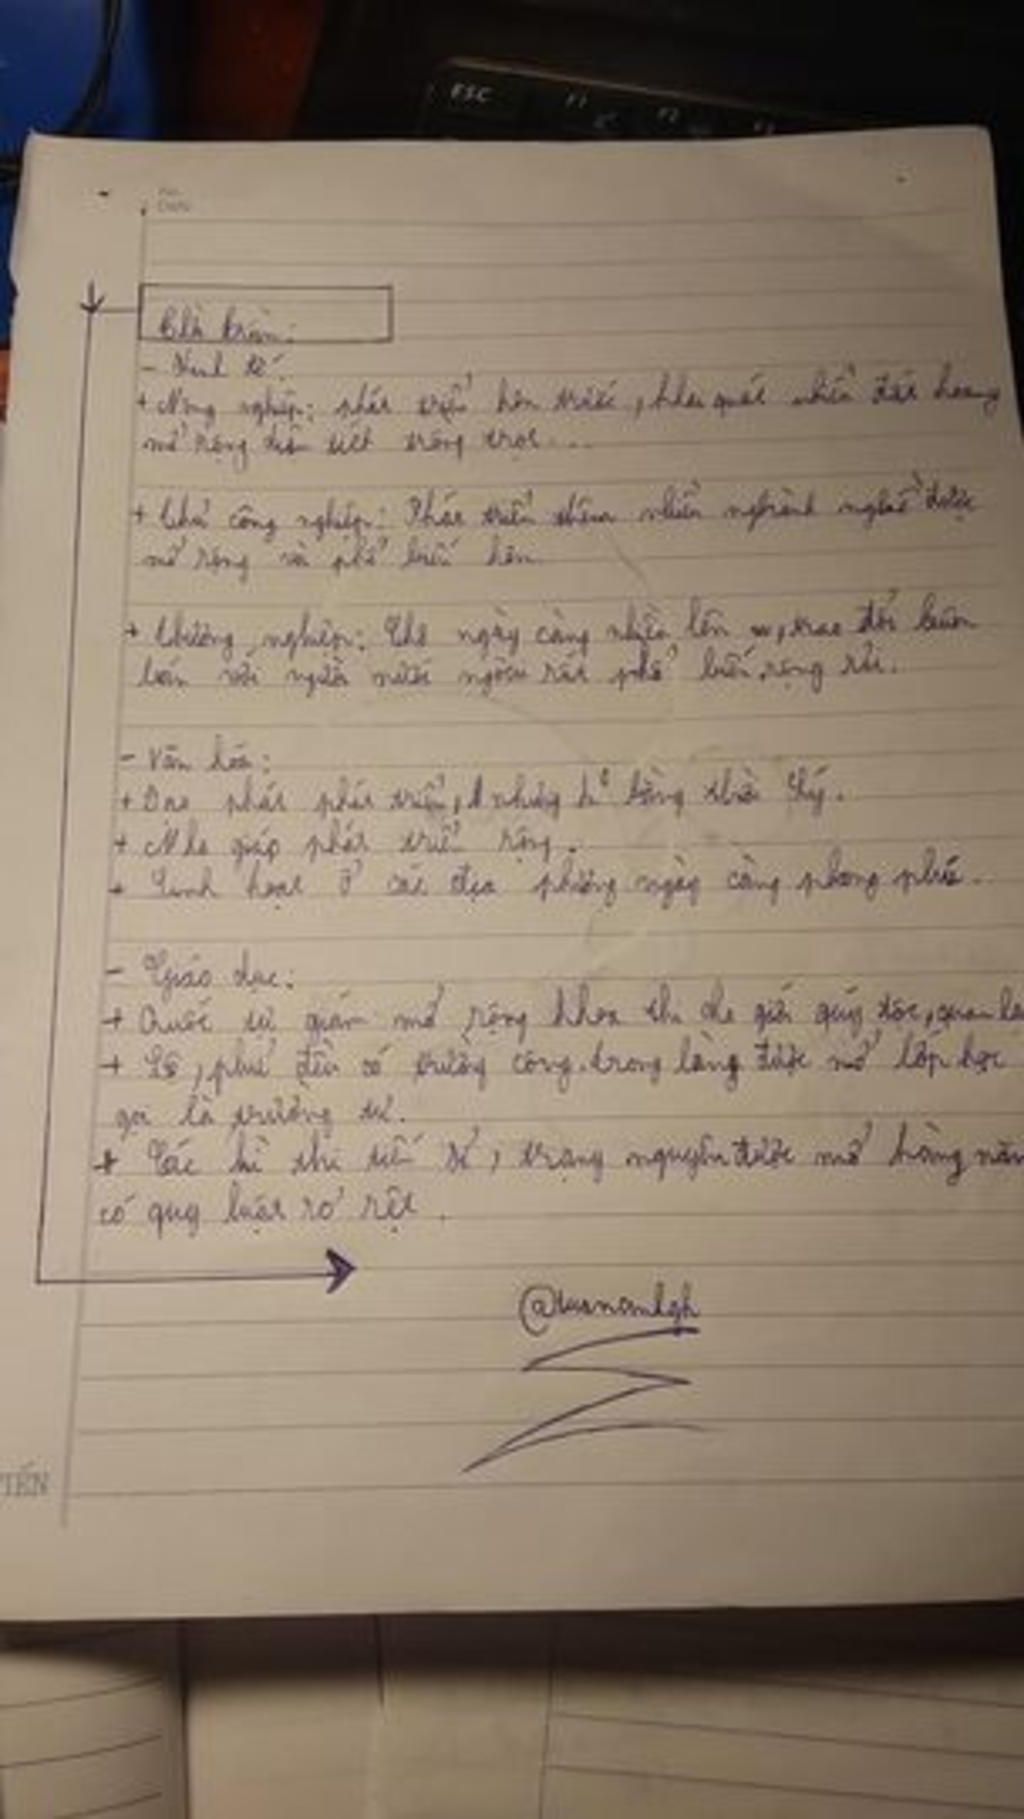 ESC F1 F2
No.
Date
Nhà Trần:
- Kinh tế:
+ Nông nghiệp: phát triển hơn trước, nhiều đất hoang
mở rộng diện tích trồng trọt...
+ Thủ công nghiệp: Phát triển thêm nhiều nghành nghề được
mở rộng và phổ biến hơn.
+ Thương nghiệp: ngày càng nhiều lên, trao đổi buôn
bán với người nước ngoài rất phổ biến, rộng rãi.
- Văn hóa:
+ Đạo phát phát triển, nhưng k bằng thời Lý.
+ Nho giáo phát triển rộng.
+ Sinh hoạt ở các địa phương ngày càng phong phú.
- Giáo dục:
+ Quốc tử giám mở rộng khoa thi cho quý tộc, quan
+ Lộ, phủ đều có trường công. trong làng được mở lớp học
gọi là trường tư.
+ Các kì thi tiến sĩ, trạng nguyên được mở hàng năm
có quy luật rõ rệt.
@tuananhgh
TIẾN